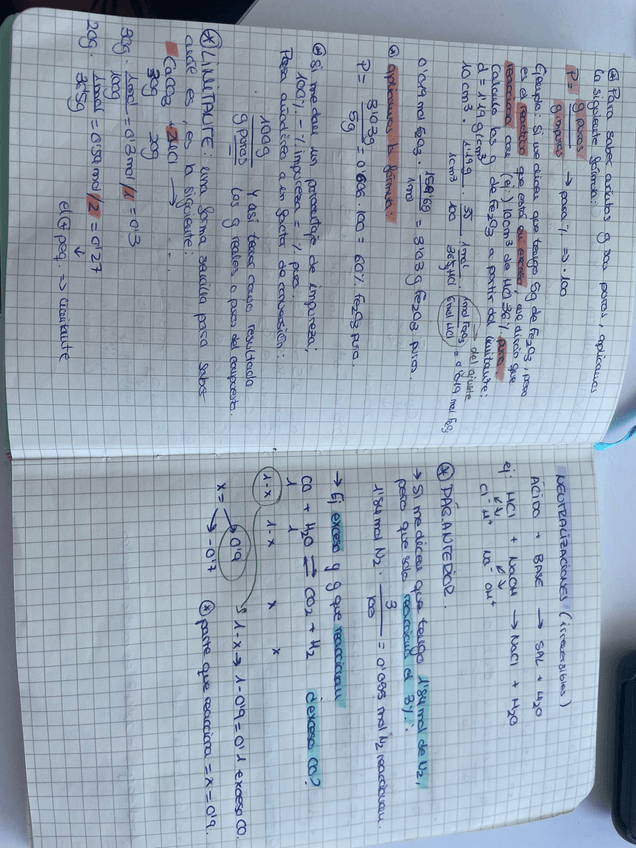 ⊛ Para saber cuántos g son puros, aplicamos
la siguiente fórmula:
P = g puros / g impuros → para % ⇒ ·100
Ejemplo: Si me dicen que tengo 5g de Fe2O3, pero
es el reactivo que está en exceso, me dicen que
reacciona con (ej:) 10cm3 de HCl 36% pura
d = 1'19 g/cm3
Calculo los g de Fe2O3 a partir del limitante:
10 cm3 · 1'19g / 1cm3 · / 100 · 1mol / HCl · / 6mol HCl = 0'019 mol
→ del ajuste
0'019 mol Fe2O3 · / 1mol = 3'03 g Fe2O3 puros.
⊛ aplicamos la fórmula:
P = 3'03g / 5g = 0'606 · 100 = 60% Fe2O3 pura.
⊛ Si me dan un porcentaje de impureza;
100% - % impureza = % pura
Para añadirla a un factor de conversión:
100g / g puros y así tener como resultado
los g reales o puros del compuesto.
⊛ LIMITANTE: una forma sencilla para saber
cuál es, es la siguiente:
CaCO3 + 2HCl → ...
30g 20g
30g · 1mol / 100g = 0'3 mol /1 = 0'3
20g · 1mol / 36'5g = 0'54 mol /2 = 0'27
↓
el + peq. ⇒ limitante
NEUTRALIZACIONES (irreversibles)
ÁCIDO + BASE → SAL + H2O
ej: HCl + NaOH → NaCl + H2O
Cl- H+ Na- OH+
⊛ PÁG. ANTERIOR.
→ Si me dicen que tengo 1'84 mol de N2,
pero que solo reacciona el 3%:
1'84 mol N2 · 3 / 100 = 0'055 mol N2 reaccionan.
→ Ej exceso y g que reaccionan
CO + H2O ⇌ CO2 + H2 ¿exceso CO?
1 1
1-x 1-x x x
x = 0'9 1-x → 1-0'9 = 0'1 exceso CO.
-0'7 ⊛ parte que reacciona = x = 0'9.